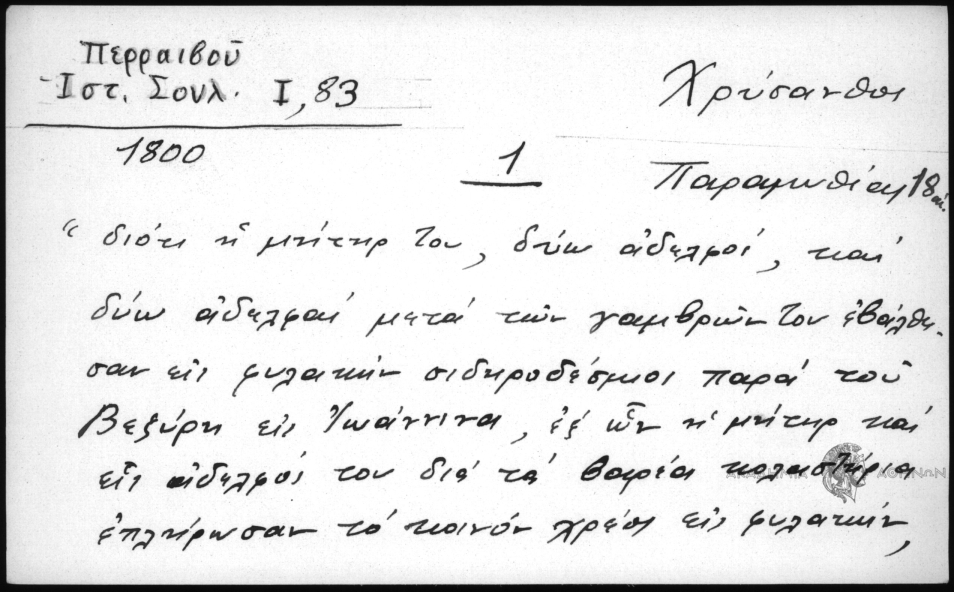 Περραιβοῦ
Ἱστ. Σουλ. I, 83
Χρύσανθος
1800
1
Παραμυθίας 18 αἰ.
“ διότι ἡ μήτηρ του, δύω ἀδελφοί, καί
δύω ἀδελφαί μετά τῶν γαμβρῶν του ἐβάλθη-
σαν εἰς φυλακήν σιδηροδέσμιοι παρά τοῦ
Βεζύρη εἰς Ἰωάννινα, ἐξ ὧν ἡ μήτηρ καί
εἷς ἀδελφός του διά τά βαρέα κολαστήρια
ΑΚΑΔΗΜΙΑ ΑΘΗΝΩΝ
ἐπλήρωσαν τό κοινόν χρέος εἰς φυλακήν,